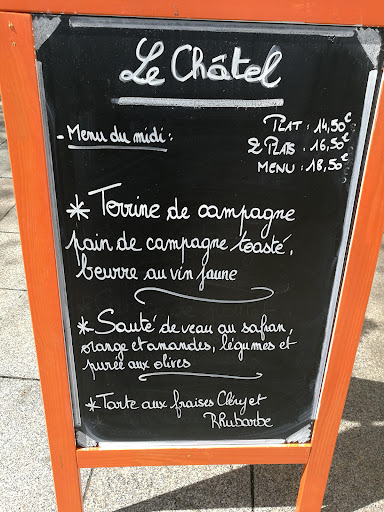 Le Châtel
- Menu du midi :
PLAT : 14,50€
2 PLATS : 16,50€
MENU : 18,50€
* Terrine de campagne
pain de campagne toasté,
beurre au vin jaune
* Sauté de veau au safran,
orange et amandes, légumes et
purée aux olives
* Tarte aux fraises Cléry et
Rhubarbe